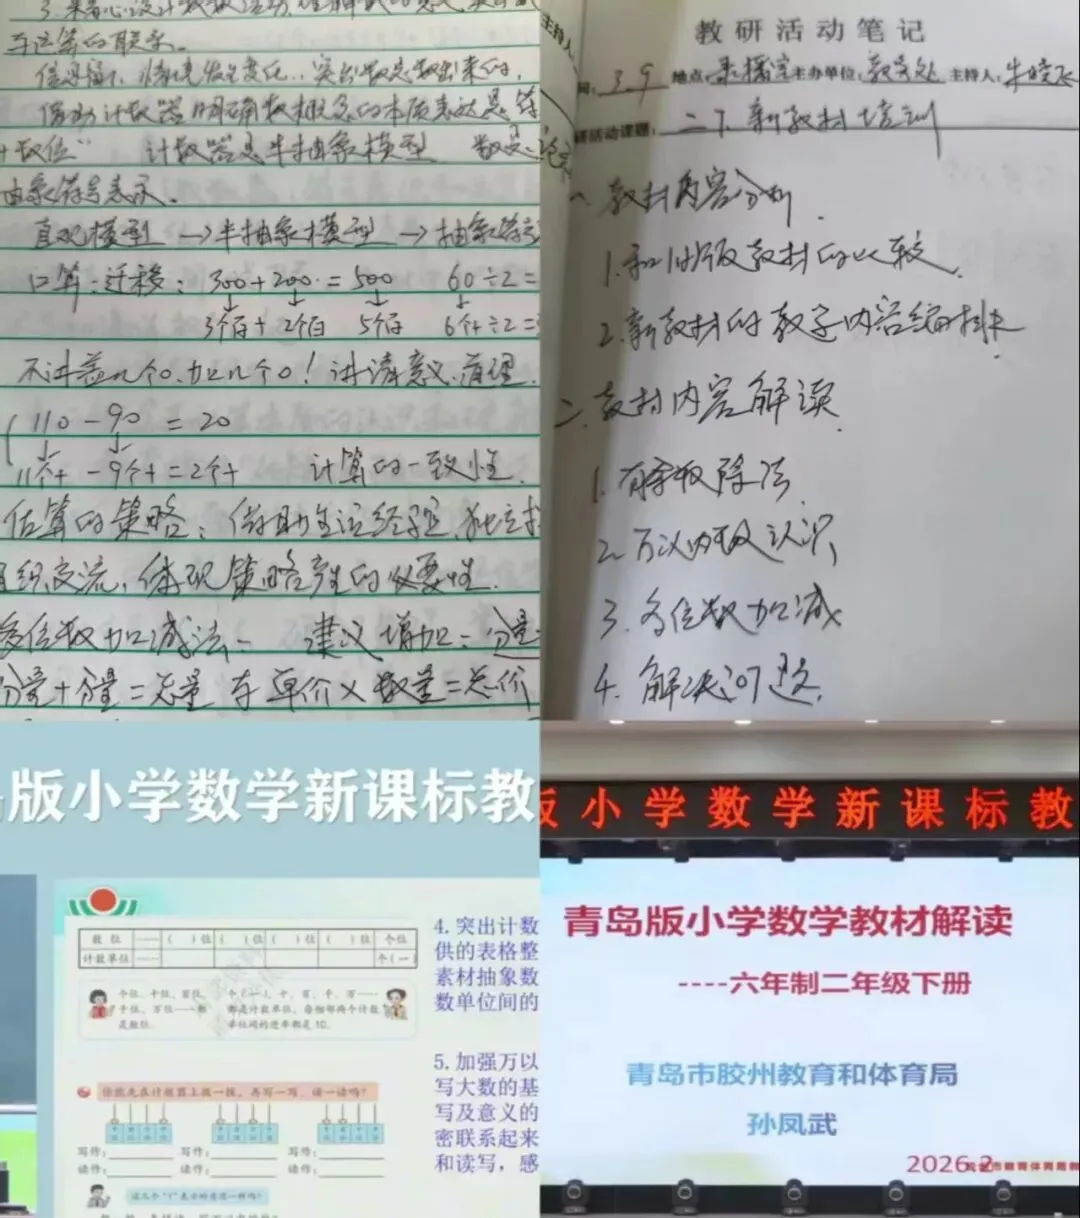 与运算的联系。
信息窗1,情境发生变化,突出数是数出来的,
借助计数器明确数概念的本质表达是"符
+数位" 计数器是半抽象模型 数是
抽象符号表示。
直观模型→半抽象模型→抽象符号
口算:迁移:300+200=500 60÷2=
3个百+2个百 5个百 6个十÷2=
不讲盖n个0,加n个0!讲清意义、道理.
110-90=20
11个十-9个十=2个十 计算的一致性.
估算的策略:借助生活经验,独立
组织交流,体现策略产生的必要性.
多位数加减法: 建议增加:分量
分量+分量=总量 与 单价×数量=总价
教研活动笔记
主持人:
间:3.9 地点:录播室 主办单位:教务处 主持人:
研活动课题:二下新教材培训
一、教材内容分析.
1.和旧版教材的比较.
2.新教材的教学内容编排.
二、教材内容解读.
1.有余数除法.
2.万以内数认识
3.多位数加减
4.解决问题.
岛版小学数学新课标教
数位 …… ( )位 ( )位 ( )位 ( )位 个位
计数单位 …… 个(一)
个位、十位、百位、
千位、万位……都
是数位。
个(一)、十、百、千、万……
都是计数单位,每相邻两个计数
单位间的进率都是10。
你能先在计数器上拨一拨,再写一写、读一读吗?
写作: 写作: 写作:
读作: 读作: 读作:
这几个"1"表示的意思一样吗?
4.突出计数
供的表格整
素材抽象数
数单位间的
5.加强万以
写大数的基
写及意义的
密联系起来
和读写,感
版小学数学新课标教
青岛版小学数学教材解读
----六年制二年级下册
青岛市胶州教育和体育局
孙凤武
2026.2